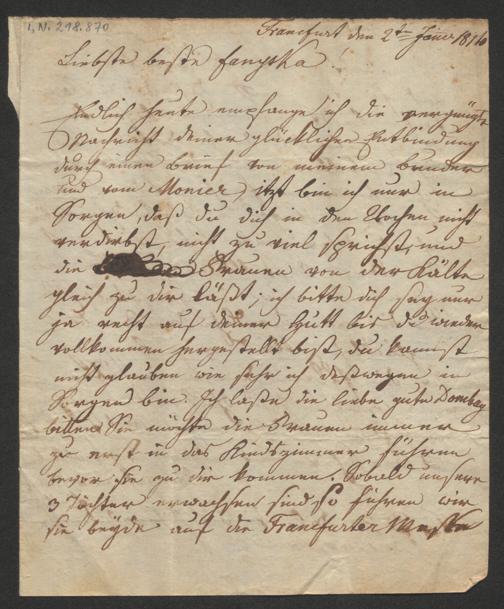 I. N. 298.870
Francfurt den 2ten Jäner 1816
Liebste beste Fanyska!
Endlich heute empfange ich die vergnügte
Nachricht deiner glücklichen Entbindung
durch einen Brief von meinem Bruder
und vom Monier, itzt bin ich nur in
Sorgen, daß du dich in den Wochen nicht
verdirbst, nicht zu viel sprichst, und
die Frauen von der Kälte
gleich zu dir läßt, ich bitte dich sey nur
ja recht auf deiner Hutt bis du wieder
vollkommen hergestellt bist, du kannst
nicht glauben wie sehr ich deßwegen in
Sorgen bin. Ich lasse die liebe gute Dombay
bitten Sie möchte die Frauen immer
zu erst in das Kindszimmer führen
bevor sie zu dir kommen. Sobald unsere
3 Töchter erwachsen sind so führen wir
sie beyde auf die Francfurter Messe